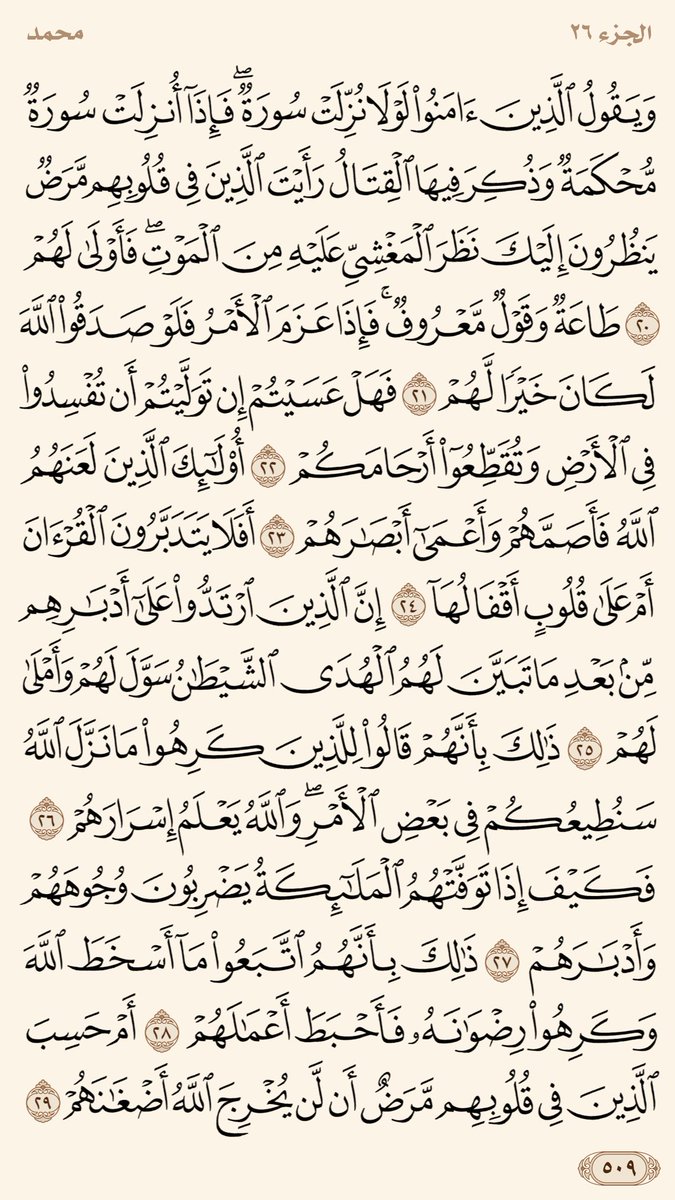 الجزء ٢٦
محمد
وَيَقُولُ ٱلَّذِينَ ءَامَنُوا۟ لَوْلَا نُزِّلَتْ سُورَةٌۖ فَإِذَآ أُنزِلَتْ سُورَةٌ
مُّحْكَمَةٌ وَذُكِرَ فِيهَا ٱلْقِتَالُ رَأَيْتَ ٱلَّذِينَ فِى قُلُوبِهِم مَّرَضٌ
يَنظُرُونَ إِلَيْكَ نَظَرَ ٱلْمَغْشِىِّ عَلَيْهِ مِنَ ٱلْمَوْتِۖ فَأَوْلَىٰ لَهُمْ
٢٠ طَاعَةٌ وَقَوْلٌ مَّعْرُوفٌۚ فَإِذَا عَزَمَ ٱلْأَمْرُ فَلَوْ صَدَقُوا۟ ٱللَّهَ
لَكَانَ خَيْرًا لَّهُمْ ٢١ فَهَلْ عَسَيْتُمْ إِن تَوَلَّيْتُمْ أَن تُفْسِدُوا۟
فِى ٱلْأَرْضِ وَتُقَطِّعُوٓا۟ أَرْحَامَكُمْ ٢٢ أُو۟لَـٰٓئِكَ ٱلَّذِينَ لَعَنَهُمُ
ٱللَّهُ فَأَصَمَّهُمْ وَأَعْمَىٰٓ أَبْصَـٰرَهُمْ ٢٣ أَفَلَا يَتَدَبَّرُونَ ٱلْقُرْءَانَ
أَمْ عَلَىٰ قُلُوبٍ أَقْفَالُهَآ ٢٤ إِنَّ ٱلَّذِينَ ٱرْتَدُّوا۟ عَلَىٰٓ أَدْبَـٰرِهِم
مِّنۢ بَعْدِ مَا تَبَيَّنَ لَهُمُ ٱلْهُدَى ٱلشَّيْطَـٰنُ سَوَّلَ لَهُمْ وَأَمْلَىٰ
لَهُمْ ٢٥ ذَٰلِكَ بِأَنَّهُمْ قَالُوا۟ لِلَّذِينَ كَرِهُوا۟ مَا نَزَّلَ ٱللَّهُ
سَنُطِيعُكُمْ فِى بَعْضِ ٱلْأَمْرِۖ وَٱللَّهُ يَعْلَمُ إِسْرَارَهُمْ ٢٦
فَكَيْفَ إِذَا تَوَفَّتْهُمُ ٱلْمَلَـٰٓئِكَةُ يَضْرِبُونَ وُجُوهَهُمْ
وَأَدْبَـٰرَهُمْ ٢٧ ذَٰلِكَ بِأَنَّهُمُ ٱتَّبَعُوا۟ مَآ أَسْخَطَ ٱللَّهَ
وَكَرِهُوا۟ رِضْوَٰنَهُۥ فَأَحْبَطَ أَعْمَـٰلَهُمْ ٢٨ أَمْ حَسِبَ
ٱلَّذِينَ فِى قُلُوبِهِم مَّرَضٌ أَن لَّن يُخْرِجَ ٱللَّهُ أَضْغَـٰنَهُمْ ٢٩
٥٠٩